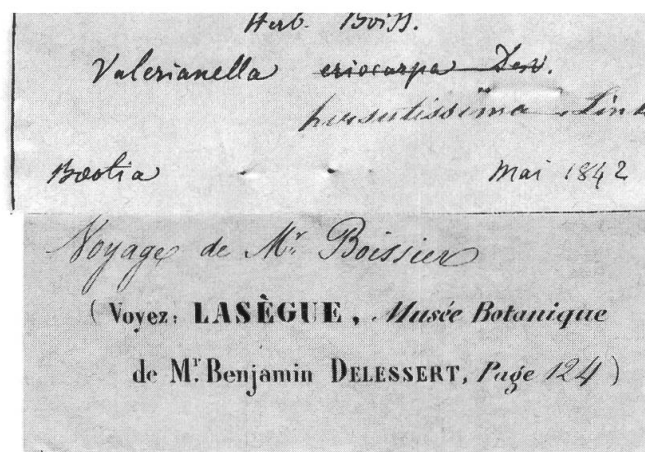 Herb. Boiss.
Valerianella eriocarpa Desv.
hirsutissima Link
Bœotia Mai 1842
Voyage de Mr. Boissier
(Voyez: LASÈGUE, Musée Botanique
de Mr. Benjamin DELESSERT, Page 124)